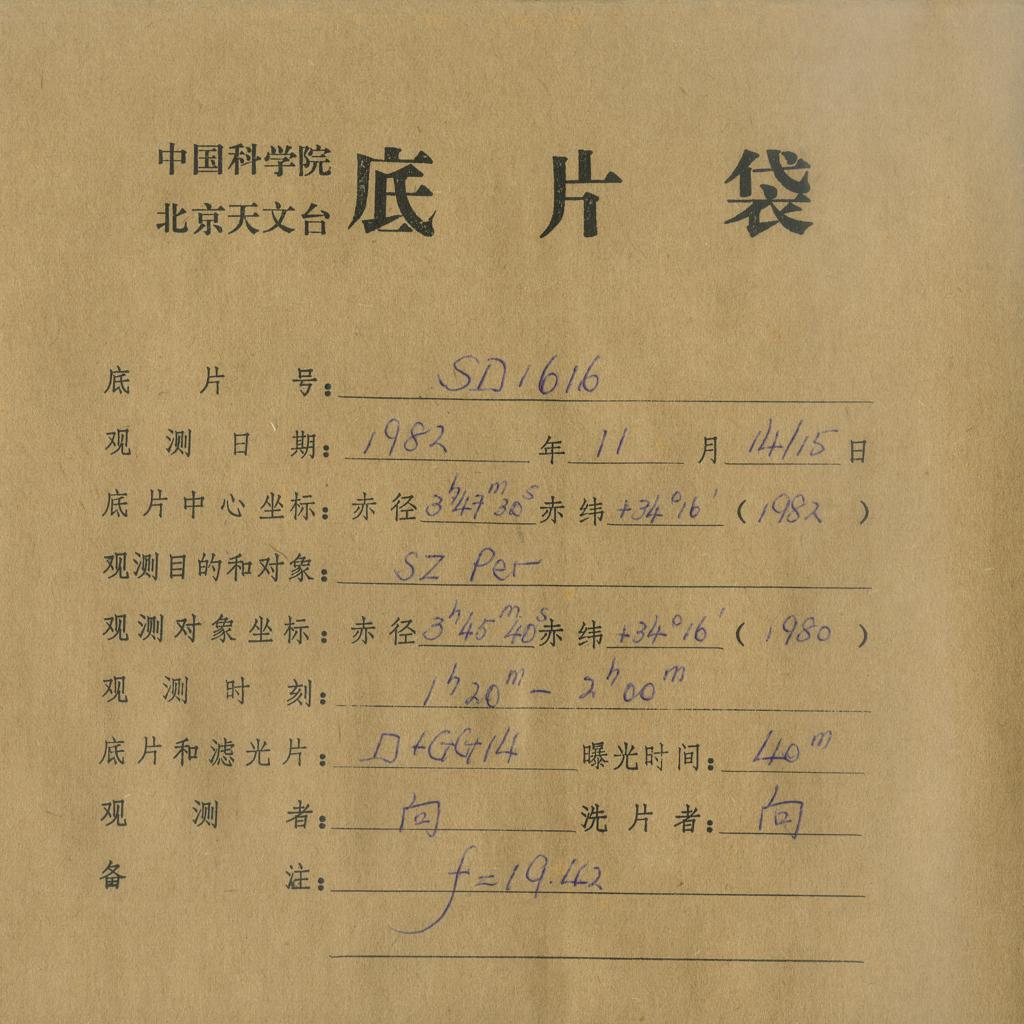 中国科学院
北京天文台
底片袋
底片号：SD1616
观测日期：1982年11月14/15日
底片中心坐标：赤径3h47m30s赤纬+34°16′（1982）
观测目的和对象：SZ Per
观测对象坐标：赤径3h45m40s赤纬+34°16′（1980）
观测时刻：1h20m－2h00m
底片和滤光片：D+GG14 曝光时间：40m
观测者：向 洗片者：向
备注：f=19.42